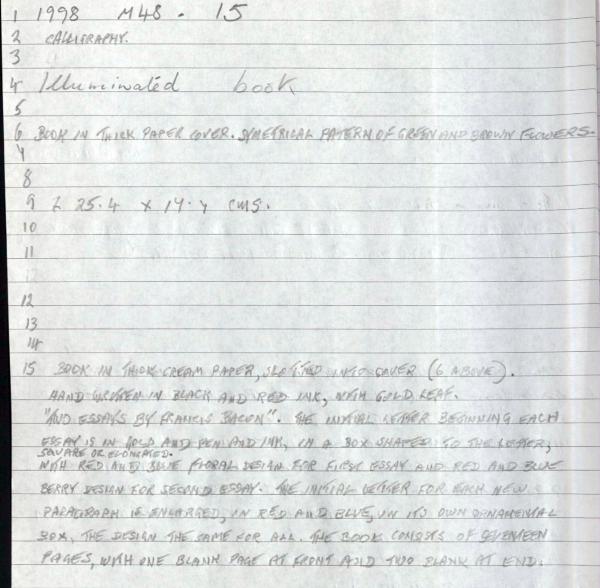 1 1998 M48. 15
2 CALLIGRAPHY.
3
4 Illuminated book
5
6 BOOK IN THICK PAPER COVER. SYMETRICAL PATERN OF GREEN AND BROWN FLOWERS.
7
8
9 25.4 x cms.
10
11
12
13
14
15 BOOK IN THICK CREAM PAPER, SLOTTED INTO COVER (6 ABOVE).
HAND WRITTEN IN BLACK AND RED INK, WITH GOLD LEAF.
"TWO ESSAYS BY FRANCIS BACON". THE INITIAL LETTER BEGINNING EACH
ESSAY IS IN GOLD AND PEN AND INK, IN A BOX SHAPED TO THE LETTER,
SQUARE OR ELONGATED.
WITH RED AND BLUE FLORAL DESIGN FOR FIRST ESSAY AND RED AND BLUE
BERRY DESIGN FOR SECOND ESSAY. THE INITIAL LETTER FOR EACH NEW
PARAGRAPH IS ENLARGED, IN RED AND BLUE, IN ITS OWN ORNAMENTAL
BOX, THE DESIGN THE SAME FOR ALL. THE BOOK CONSISTS OF SEVENTEEN
PAGES, WITH ONE BLANK PAGE AT FRONT AND TWO BLANK AT END.